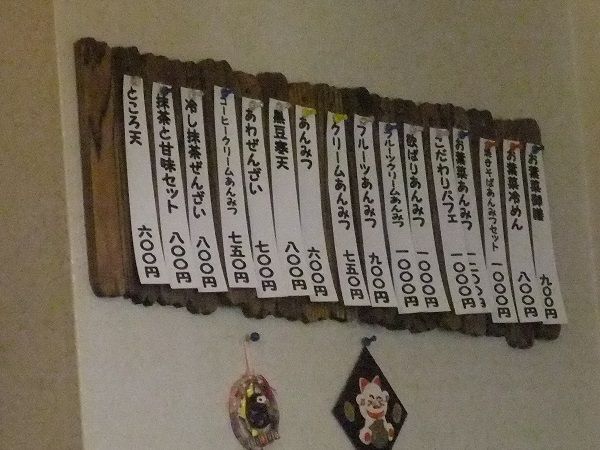 お薬菜御膳 九〇〇円
お薬菜冷めん 八〇〇円
焼きそばあんみつセット 一〇〇〇円
お薬菜あんみつ
こだわりパフェ 一〇〇〇円
欲ばりあんみつ 一〇〇〇円
フルーツクリームあんみつ 一〇〇〇円
フルーツあんみつ 九〇〇円
クリームあんみつ 七五〇円
あんみつ 六〇〇円
黒豆寒天 八〇〇円
あわぜんざい 七〇〇円
コーヒークリームあんみつ 七五〇円
冷し抹茶ぜんざい 八〇〇円
抹茶と甘味セット 八〇〇円
ところ天 六〇〇円